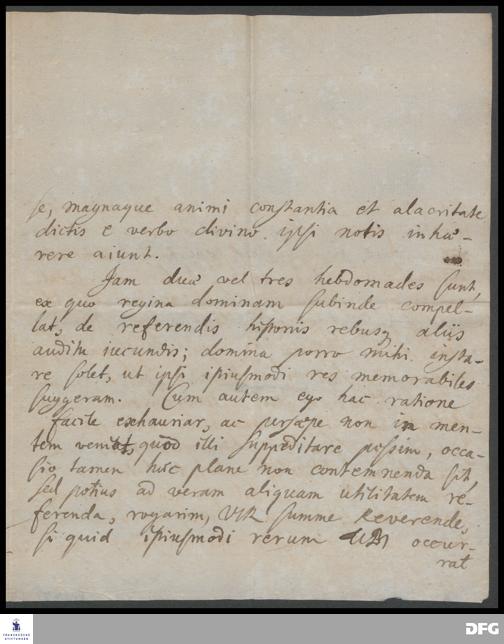 se, magnaque animi constantia et alacritate
dictis e verbo divino ipsi notis inhæ-
rere aiunt.
Jam duæ vel tres hebdomades sunt,
ex quo regina dominam subinde compel-
lat, de referendis historiis rebusq aliis
auditu iucundis; domina porro mihi insta-
re solet, ut ipsi istiusmodi res memorabiles
suggeram. Cum autem ego hac ratione
facile exhauriar, ac persæpe non in men-
tem veniat, quod illi suppeditare possim, occa-
sio tamen hæc plane non contemnenda sit,
sed potius ad veram aliquam utilitatem re-
ferenda, rogarim, Vir summe Reverende,
si quid istiusmodi rerum occur-
rat
FRANCKESCHE
STIFTUNGEN
DFG